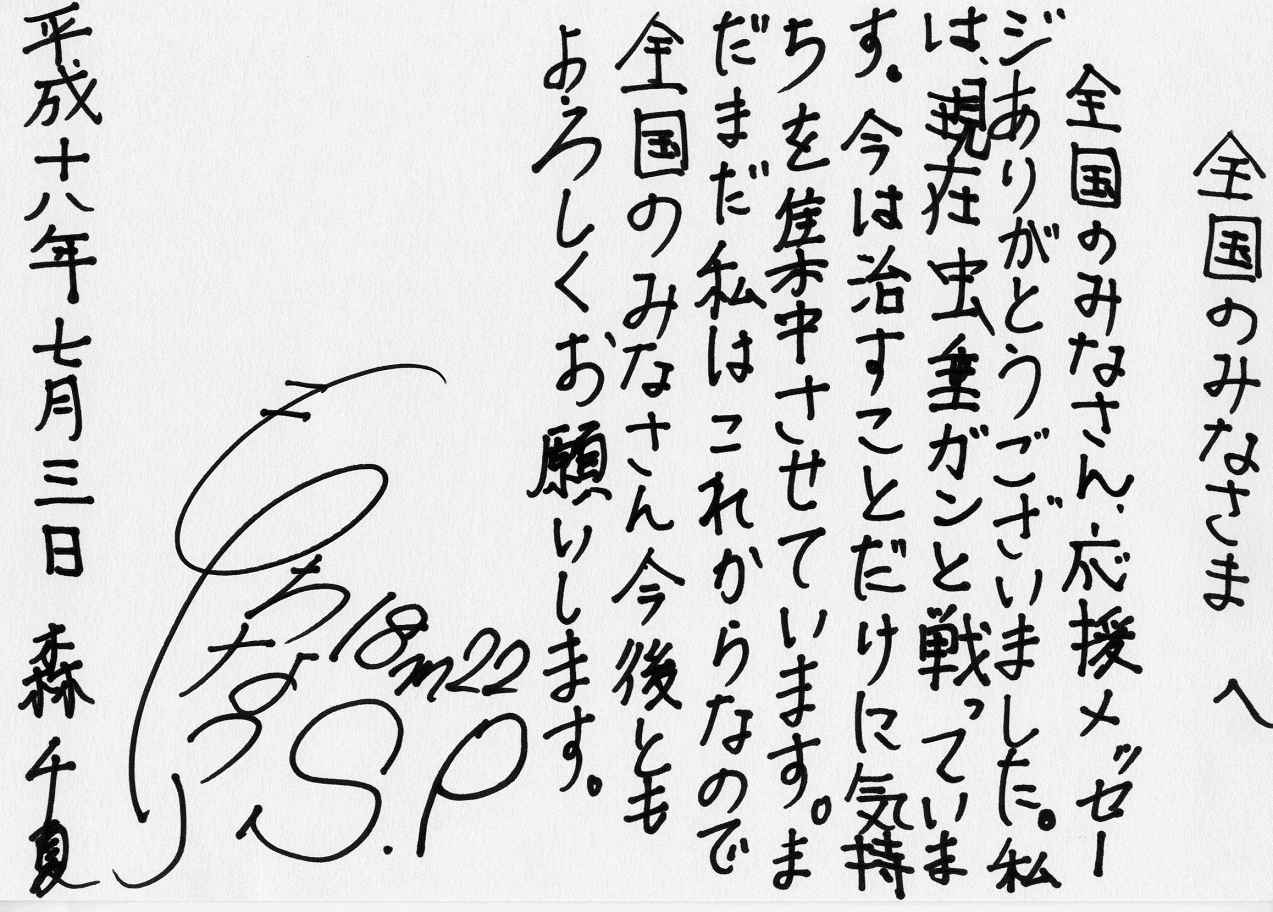 全国のみなさま へ
全国のみなさん、応援メッセー
ジありがとうございました。私
は、現在虫垂ガンと戦っていま
す。今は治すことだけに気持
ちを集中させています。ま
だまだ私はこれからなので
全国のみなさん今後とも
よろしくお願いします。
18m22
S.P
平成十八年七月三日 森 千夏